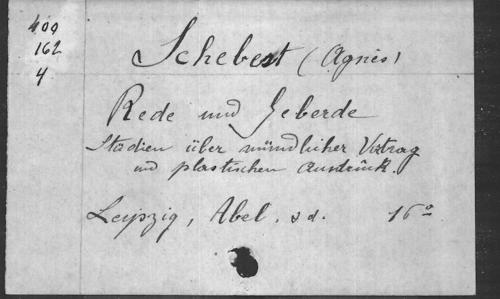 400
162
4
Schebest (Agnès)
Rede und Geberde
Studien über mündlicher Vortrag
und plastischen Ausdrück.
Leipzig, Abel, s d. 16°